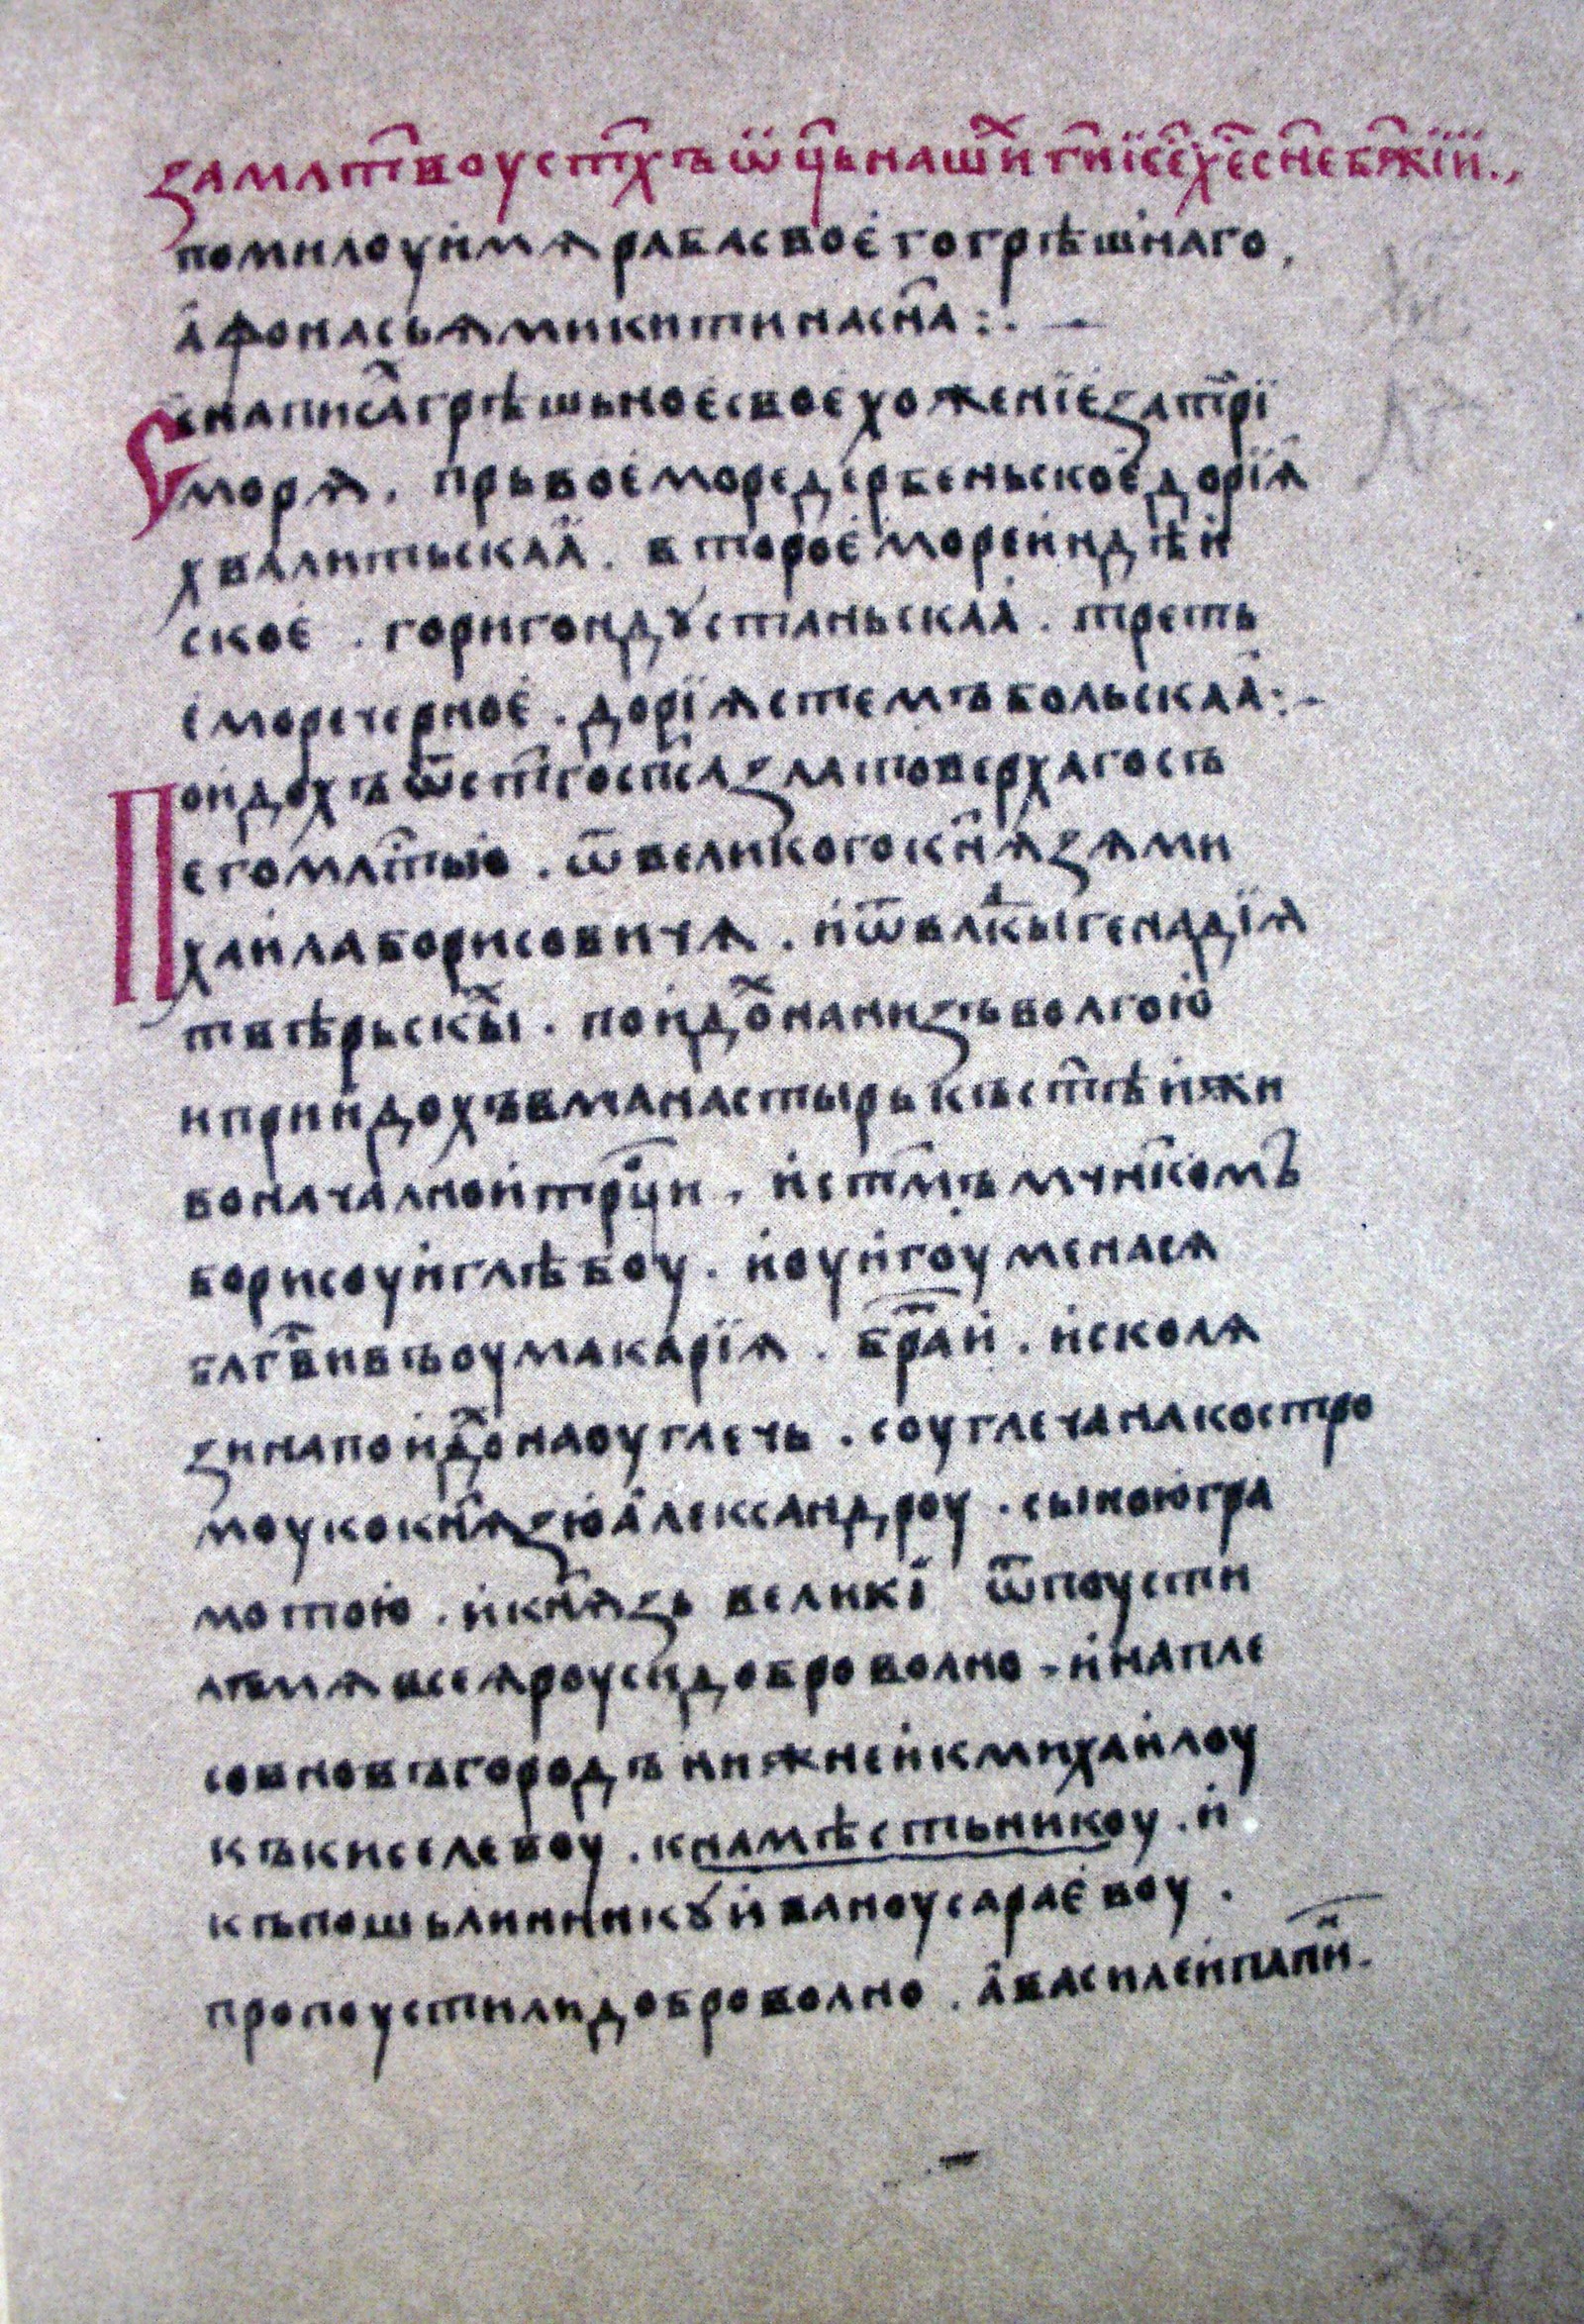 за млтвоу стхъ ѿць нашихъ ги їсе хе сне бжїи.,
помилоуй мѧ раба своего грѣшнаго,
афонасьѧ микитина сна:. —
Се написах грѣшьное свое хожениіе за три
морѧ. прьвое море дербеньское дорїѧ
хвалитьскаа. второе море индѣи
ское. горигондꙋстаньскаа. треть
е море черное. дорїѧ стемъбольскаа:-
Поидохъ ѿ стго спса златоверхаго съ
его млтью. ѿ великого кнѧзѧ ми
хаила борисовичѧ. и ѿ влкы генадїѧ
твѣрьскых. поидох на низъ волгою
и приидохъ в манастырь къ стѣи жи
воначалнои трци. и стмъ мчнкомъ
борисоу и глѣбоу. и оу игоумена сѧ
блгвивъ оу макарїѧ. братьи. и с колѧ
зина поидох на оуглечь. с оуглеча на костро
моу ко кнѧзю александроу. с ыною гра
мотою. и кнѧзь великї ѿпоусти
лъ мѧ всеѧ роуси доброволно. и на пле
со в новъгородъ нижнеи к михаилоу
къ киселевоу. к намѣстьникоу. и
къ пошьлинникꙋ иваноу сараевоу.
пропоустили доброволно. а василеи папин.